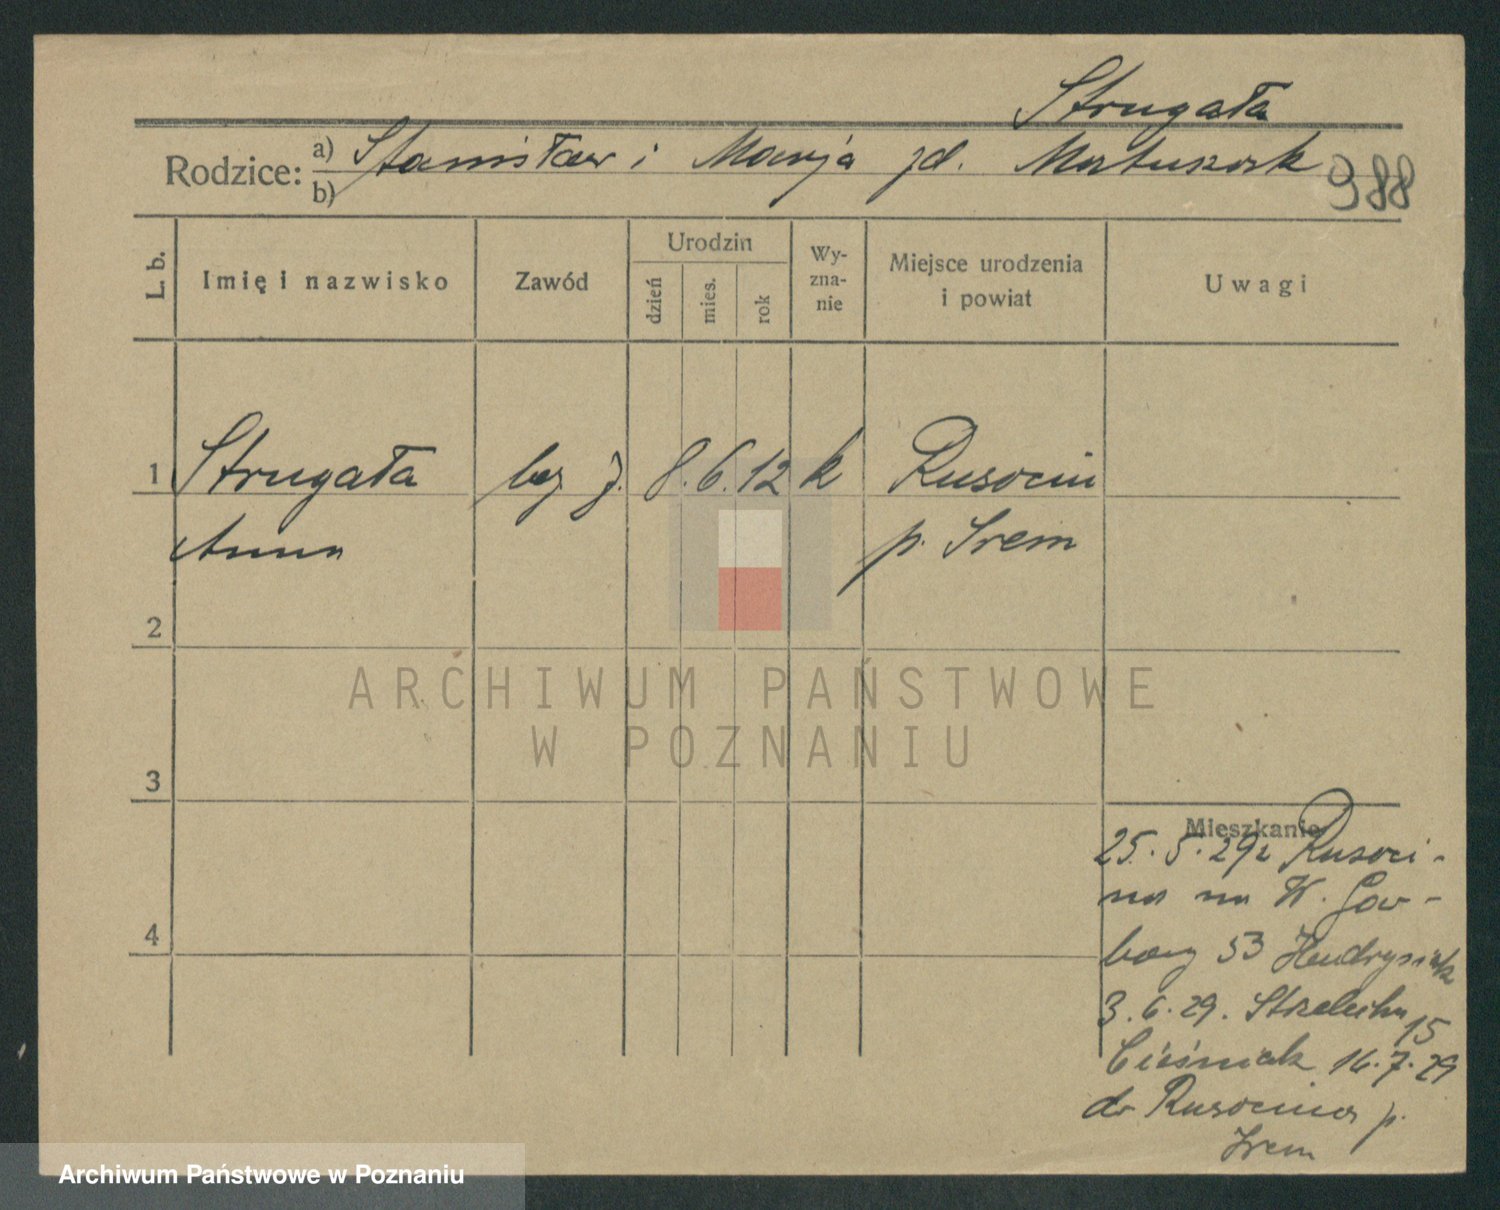 Strugała
Rodzice: a) Stanisław i Marja zd. Matuszak
b)
988
L. b.
Imię i nazwisko
Zawód
Urodzin
dzień
mies.
rok
Wy-
zna-
nie
Miejsce urodzenia
i powiat
Uwagi
1 Strugała bez z. 8. 6. 12 k Rusocin
Anna p. Śrem
2
3
4
ARCHIWUM PAŃSTWOWE
W POZNANIU
Mieszkanie
25. 5. 29 z Rusoci-
na na W. Gar-
bary 53 Hendrysiak
3. 6. 29. Strzelecka 15
Cieśniak 16. 7. 29
do Rusocina p.
Śrem
Archiwum Państwowe w Poznaniu